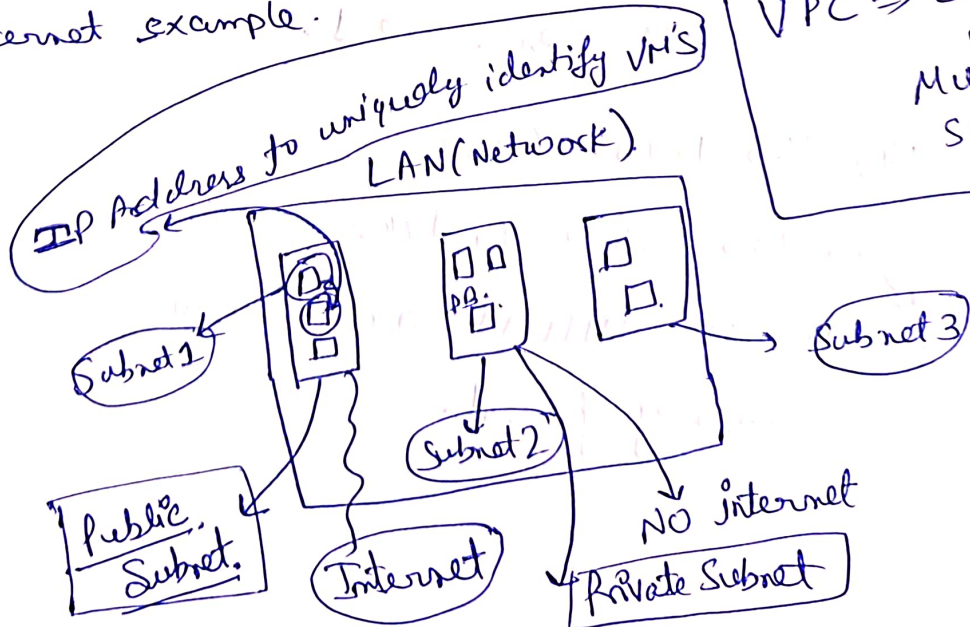 ernet example.
VPC =>
Mu
S
IP Address to uniquely identify VM'S
LAN (Network)
Subnet 1
DB.
Subnet 2
Subnet 3
Public
Subnet.
Internet
NO internet
Private Subnet